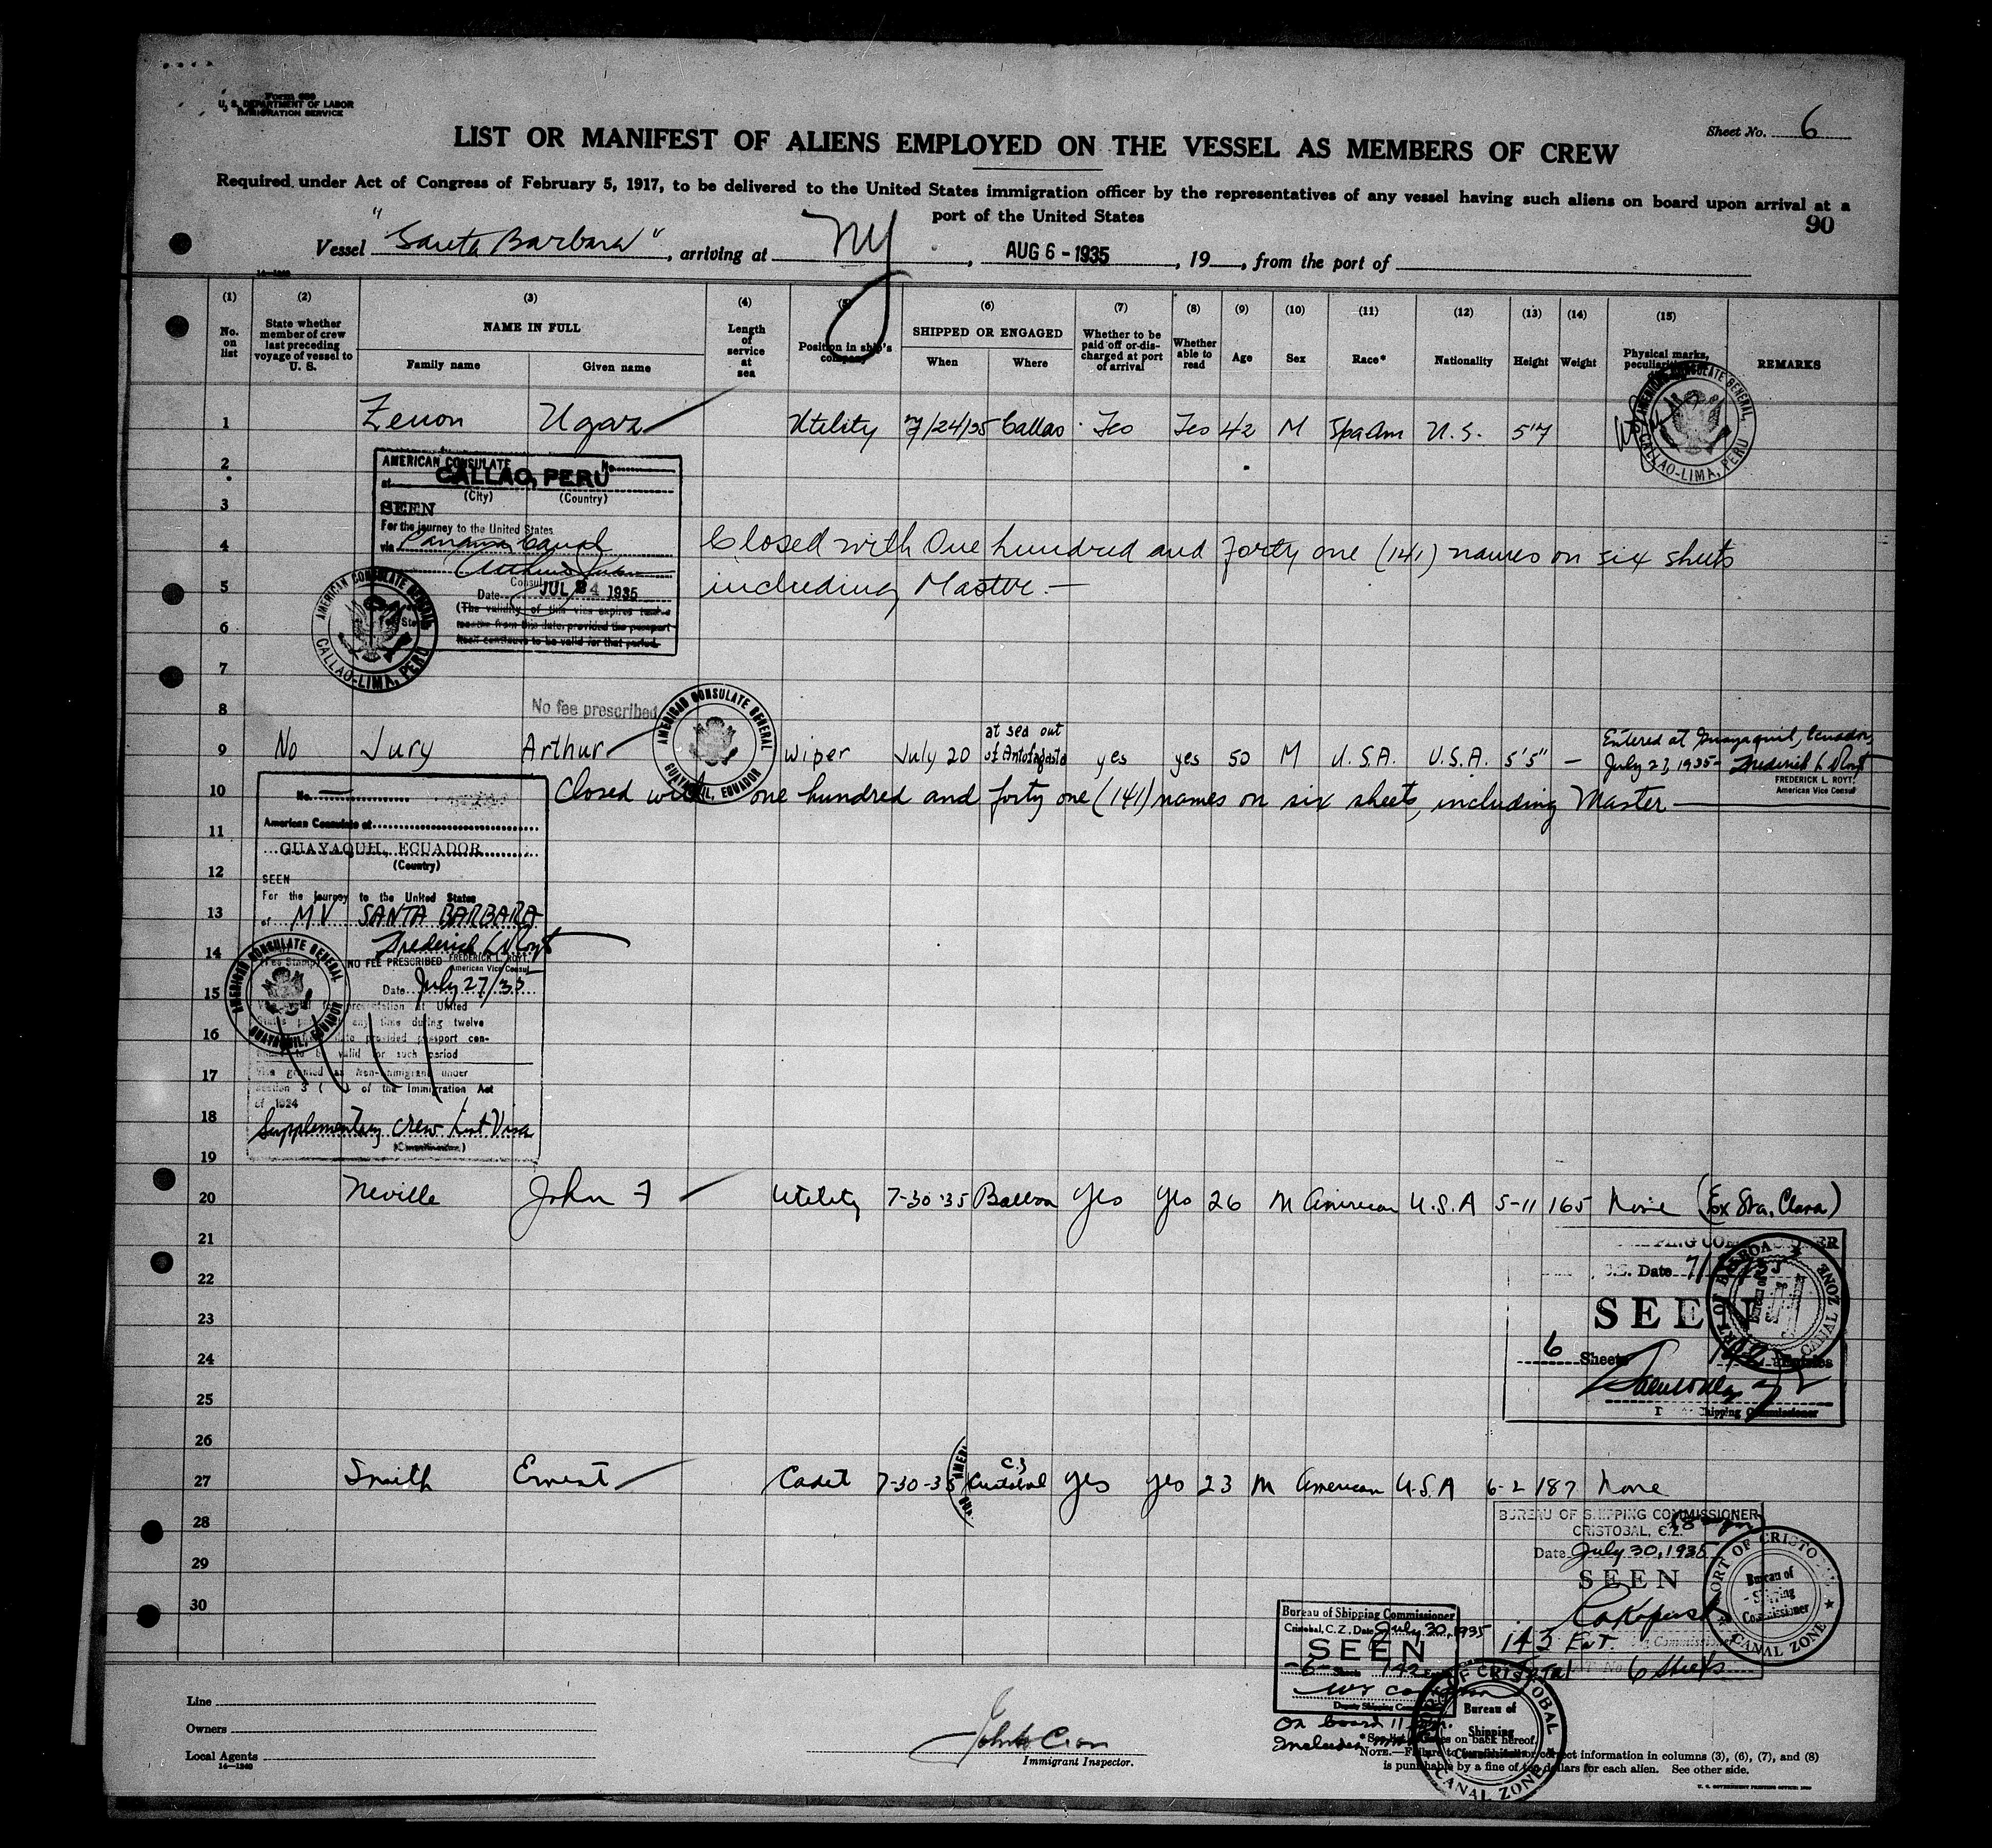 Form 680
U. S. DEPARTMENT OF LABOR
IMMIGRATION SERVICE
Sheet No. 6
LIST OR MANIFEST OF ALIENS EMPLOYED ON THE VESSEL AS MEMBERS OF CREW
Required under Act of Congress of February 5, 1917, to be delivered to the United States immigration officer by the representatives of any vessel having such aliens on board upon arrival at a
port of the United States
90
Vessel "Santa Barbara", arriving at NY, AUG 6 - 1935, 19, from the port of
(1) (2) (3) (4) (5) (6) (7) (8) (9) (10) (11) (12) (13) (14) (15)
No. on list
State whether member of crew last preceding voyage of vessel to U. S.
NAME IN FULL
Family name Given name
Length of service at sea
Position in ship's company
SHIPPED OR ENGAGED
When Where
Whether to be paid off or discharged at port of arrival
Whether able to read
Age Sex Race* Nationality Height Weight
Physical marks,
REMARKS
1 Zenon Ugaz Utility 7/24/35 Callao Yes Yes 42 M SpaAm U.S. 5'7
AMERICAN CONSULATE GENERAL, CALLAO-LIMA, PERU
2
3
AMERICAN CONSULATE No.
at CALLAO, PERU
(City) (Country)
SEEN
For the journey to the United States
via Panama Canal
Consul
Date JUL 24 1935
(The validity of this visa expires twelve
months from this date, provided the passport
itself continues to be valid for that period.
AMERICAN CONSULATE GENERAL CALLAO-LIMA, PERU
4 Closed with One hundred and forty one (141) names on six sheets
5 including Master.
6
7
8 No fee prescribed
AMERICAN CONSULATE GENERAL GUAYAQUIL, ECUADOR
9 No Jury Arthur Wiper July 20 at sea out of Antofagasta yes yes 50 M U.S.A. U.S.A. 5'5" - Entered at Guayaquil, Ecuador, July 27, 1935-
FREDERICK L. ROYT
American Vice Consul
10 Closed with one hundred and forty one (141) names on six sheets, including Master
No.
American Consulate at
GUAYAQUIL, ECUADOR
(Country)
SEEN
For the journey to the United States
of MV SANTA BARBARA
Frederick L Royt
NO FEE PRESCRIBED FREDERICK L. ROYT
American Vice Consul
Date July 27/35
presentation at United
any time during twelve
provided passport con-
to be valid for such period
Visa granted as Non-immigrant under
section 3 ( ) of the Immigration Act
of 1924
Supplementary Crew List Visa
AMERICAN CONSULATE GENERAL GUAYAQUIL, ECUADOR
11
12
13
14
15
16
17
18
19
20 Neville John F Utility 7-30-35 Balboa Yes Yes 26 M American U.S.A 5-11 165 None (Ex Sta. Clara)
21
22
23
24
25
26
Date
SEEN
6 Sheets 142 Entries
Shipping Commissioner
PORT OF BALBOA CANAL ZONE
27 Smith Ernest Cadet 7-30-35 Cristobal C.Z Yes Yes 23 M American U.S.A 6-2 187 None
28
29
30
BUREAU OF SHIPPING COMMISSIONER
CRISTOBAL, C.Z.
Date July 30, 1935
SEEN
143 Ent.
6 Sheets
PORT OF CRISTOBAL CANAL ZONE
Bureau of
Shipping
Commissioner
Bureau of Shipping Commissioner
Cristobal, C. Z., Date July 30, 1935
SEEN
-6- Sheets 142
Deputy Shipping
On board
Includes
PORT OF CRISTOBAL CANAL ZONE
Bureau of
Shipping
Commissioner
Line
Owners
Local Agents
14-1240
Immigrant Inspector.
on back hereof.
NOTE.—Failure to correct information in columns (3), (6), (7), and (8)
is punishable by a fine of ten dollars for each alien. See other side.
U. S. GOVERNMENT PRINTING OFFICE